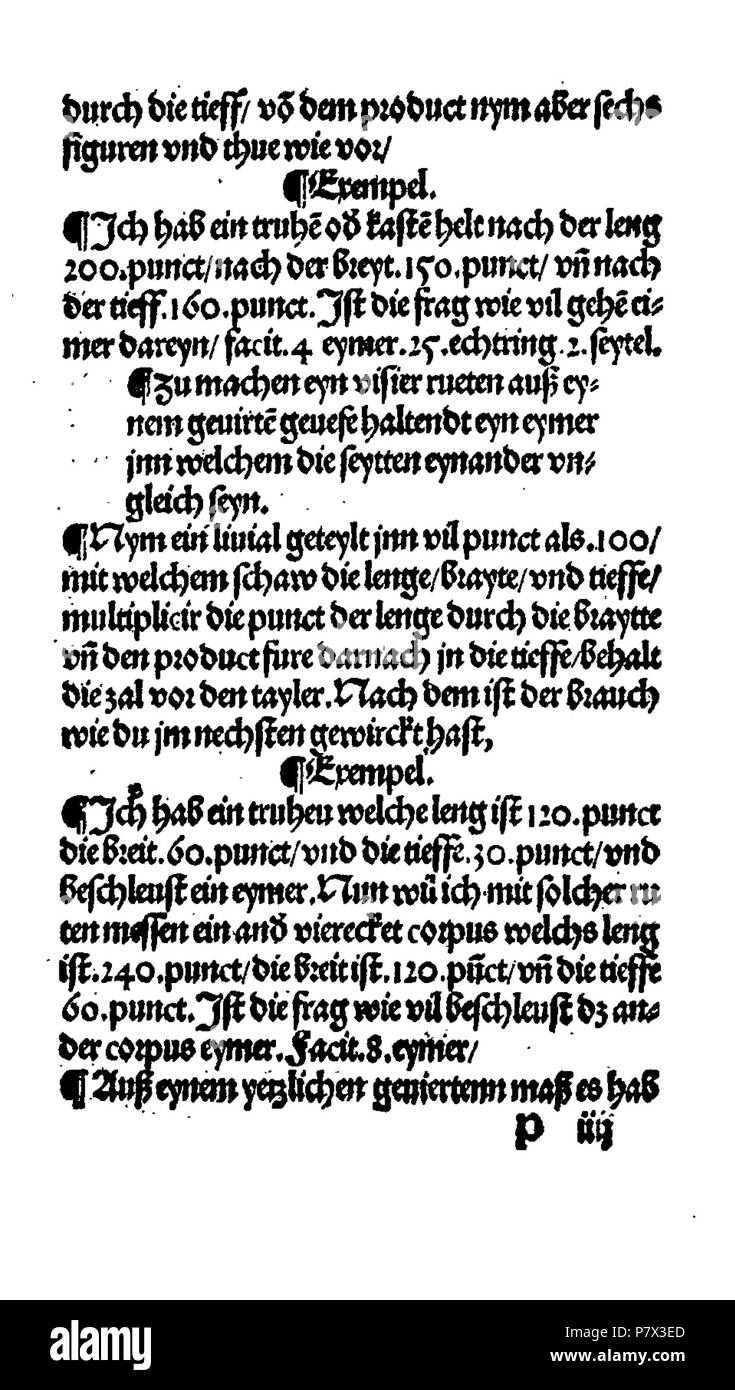 durch die tieff/ võ dem product nym aber sechs
figuren vnd thue wie vor/
¶Exempel.
¶Ich hab ein truhẽ od̕ kastẽ helt nach der leng
200.punct/nach der breyt.150.punct/ vñ nach
der tieff.160.punct.Ist die frag wie vil gehẽ ei-
mer dareyn/ facit.4 eymer.25.echtring.2.seytel.
¶Zu machen eyn visier rueten auß ey-
nem geuirtẽ geuese haltendt eyn eymer
jnn welchem die seytten eynander vn-
gleich seyn.
¶Nym ein liuial geteylt jnn vil punct als.100/
mit welchem schaw die lenge/brayte/vnd tieffe/
multiplicir die punct der lenge durch die braytte
vñ den product fure darnach jn die tieffe/behalt
die zal vor den tayler.Nach dem ist der brauch
wie du jm nechsten gewirckt hast,
¶Exempel.
¶Ich hab ein truheu welche leng ist 120.punct
die breit.60.punct/vnd die tieffe.30.punct/vnd
beschleust ein eymer.Nun wil ich mit solcher ru
ten messen ein and̕ vierecket corpus welchs leng
ist.240.punct/die breit ist.120.pũct/vñ die tieffe
60.punct.Ist die frag wie vil beschleust dz an-
der corpus eymer.Facit.8.eymer/
¶Auß eynem yetzlichen geuiertenn maß es hab
P iiij
alamy
Image ID: P7X3ED
www.alamy.com